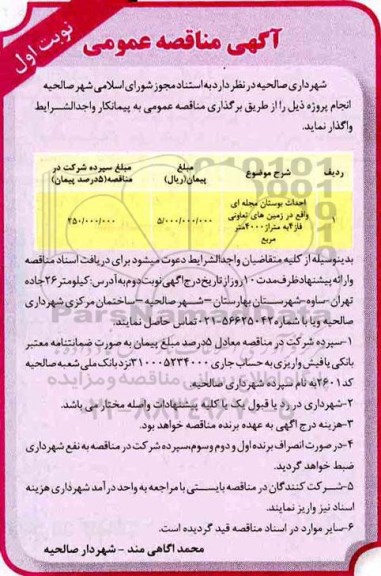 نوبت اول
آگهی مناقصه عمومی
شهرداری صالحیه در نظر دارد به استناد مجوز شورای اسلامی شهر صالحیه
انجام پروژه ذیل را از طریق برگذاری مناقصه عمومی به پیمانکار واجدالشرایط
واگذار نماید.
ردیف شرح موضوع مبلغ پیمان(ریال) مبلغ سپرده شرکت در مناقصه(۵درصد پیمان)
۱ احداث بوستان محله ای واقع در زمین های تعاونی فاز۴به متراژ۴۰۰۰متر مربع ۵/۰۰۰/۰۰۰/۰۰۰ ۲۵۰/۰۰۰/۰۰۰
بدینوسیله از کلیه متقاضیان واجدالشرایط دعوت میشود برای دریافت اسناد مناقصه
وارائه پیشنهادظرف مدت ۱۰ روز از تاریخ درج آگهی نوبت دوم به آدرس: کیلومتر ۲۶جاده
تهران-ساوه-شهرستان بهارستان-شهر صالحیه-ساختمان مرکزی شهرداری
صالحیه ویا با شماره ۵۶۶۲۵۰۴۲-۰۲۱ تماس حاصل نمایند.
۱-سپرده شرکت در مناقصه معادل ۵درصد مبلغ پیمان به صورت ضمانتنامه معتبر
بانکی یافیش واریزی به حساب جاری ۳۱۰۰۰۵۲۳۴۰۰۰نزدبانک ملی شعبه صالحیه
کد ۲۶۰۱به نام سپرده شهرداری صالحیه.
۲-شهرداری در رد یا قبول یک یا کلیه پیشنهادات واصله مختار می باشد.
۳-هزینه درج آگهی به عهده برنده مناقصه خواهد بود.
۴-در صورت انصراف برنده اول و دوم وسوم،سپرده شرکت در مناقصه به نفع شهرداری
ضبط خواهد گردید.
۵-شرکت کنندگان در مناقصه بایستی با مراجعه به واحد درآمد شهرداری هزینه
اسناد نیز واریز نمایند.
۶-سایر موارد در اسناد مناقصه قید گردیده است.
محمد آگاهی مند - شهردار صالحیه
ParsNamadData
۰۲۱-۸۸۳۴۹۶۷۰-۵